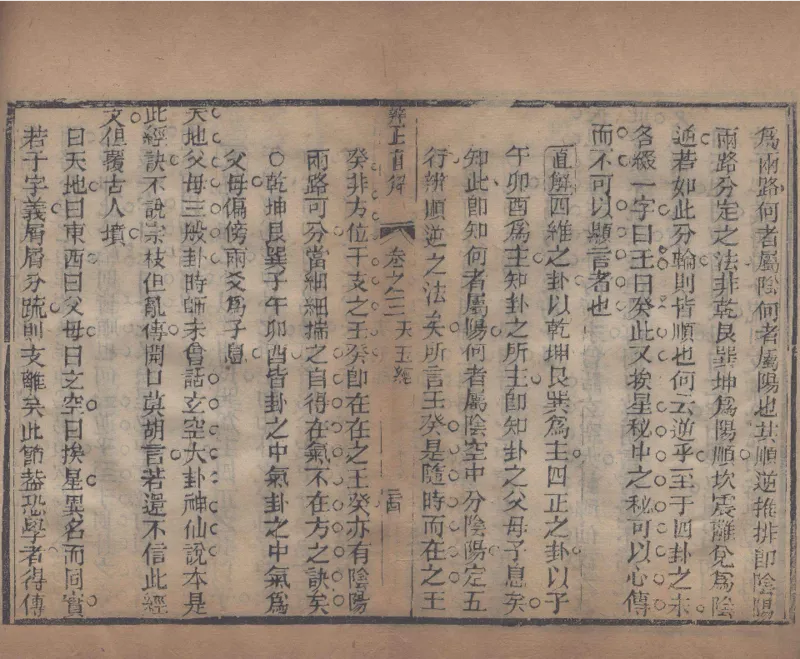 爲兩路何者屬陰何者屬陽也其順逆推排即陰陽
兩路分定之法非乾艮巽坤爲陽順坎震離兌爲陰
逆若如此分輪則皆順也何云逆乎至于四卦之末
各綴一字曰壬曰癸此又挨星秘中之秘可以心傳
而不可以顯言者也
直解四維之卦以乾坤艮巽爲主四正之卦以子
午卯酉爲主知卦之所主即知卦之父母子息矣
知此即知何者屬陽何者屬陰空中分陰陽定五
行辨順逆之法矣所言壬癸是隨時而在之壬
辨正直解 卷之三 天玉經 二十四
癸非方位干支之壬癸即在在之壬癸亦有陰陽
兩路可分當細細揣之自得在氣不在方之訣矣
○乾坤艮巽子午卯酉皆卦之中氣卦之中氣爲
父母偏傍兩爻爲子息
天地父母三般卦時師未曾話玄空大卦神仙說本是
此經訣不說宗枝但亂傳開口莫胡言若還不信此經
文但覆古人墳
曰天地曰東西曰父母曰玄空曰挨星異名而同實
若子字義屑屑分疏則支離矣此節蓋恐學者得傳